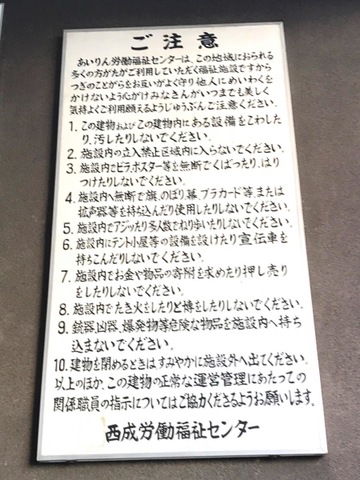 ご注意
あいりん労働福祉センターは、この地域におられる
多くの方がたがご利用していただく福祉施設ですから
つぎのことがらをお互いがよく守り他人にめいわくを
かけないよう心がけみなさんがいつまでも美しく
気持よくご利用願えるようじゅうぶんご注意ください。
1. この建物およびこの建物内にある設備をこわした
り、汚したりしないでください。
2. 施設内の立入禁止区域内に入らないでください。
3. 施設内でビラ、ポスター等を無断でくばったり、はり
つけたりしないでください。
4. 施設内へ無断で旗、のぼり、幕、プラカード等または
拡声器等を持ち込んだり使用したりしないでください。
5. 施設内でアジッたり多人数でねり歩いたりしないでください。
6. 施設内にテント小屋等の設備を設けたり宣伝車を
持ちこんだりしないでください。
7. 施設内でお金や物品の寄附を求めたり押し売り
をしたりしないでください。
8. 施設内でたき火をしたりと博をしたりしないでください。
9. 銃器、凶器、爆発物等危険な物品を施設内へ持ち
込まないでください。
10. 建物を閉めるときはすみやかに施設外へ出てください。
以上のほか、この建物の正常な運営管理にあたっての
関係職員の指示についてはご協力くださるようお願いします。
西成労働福祉センター